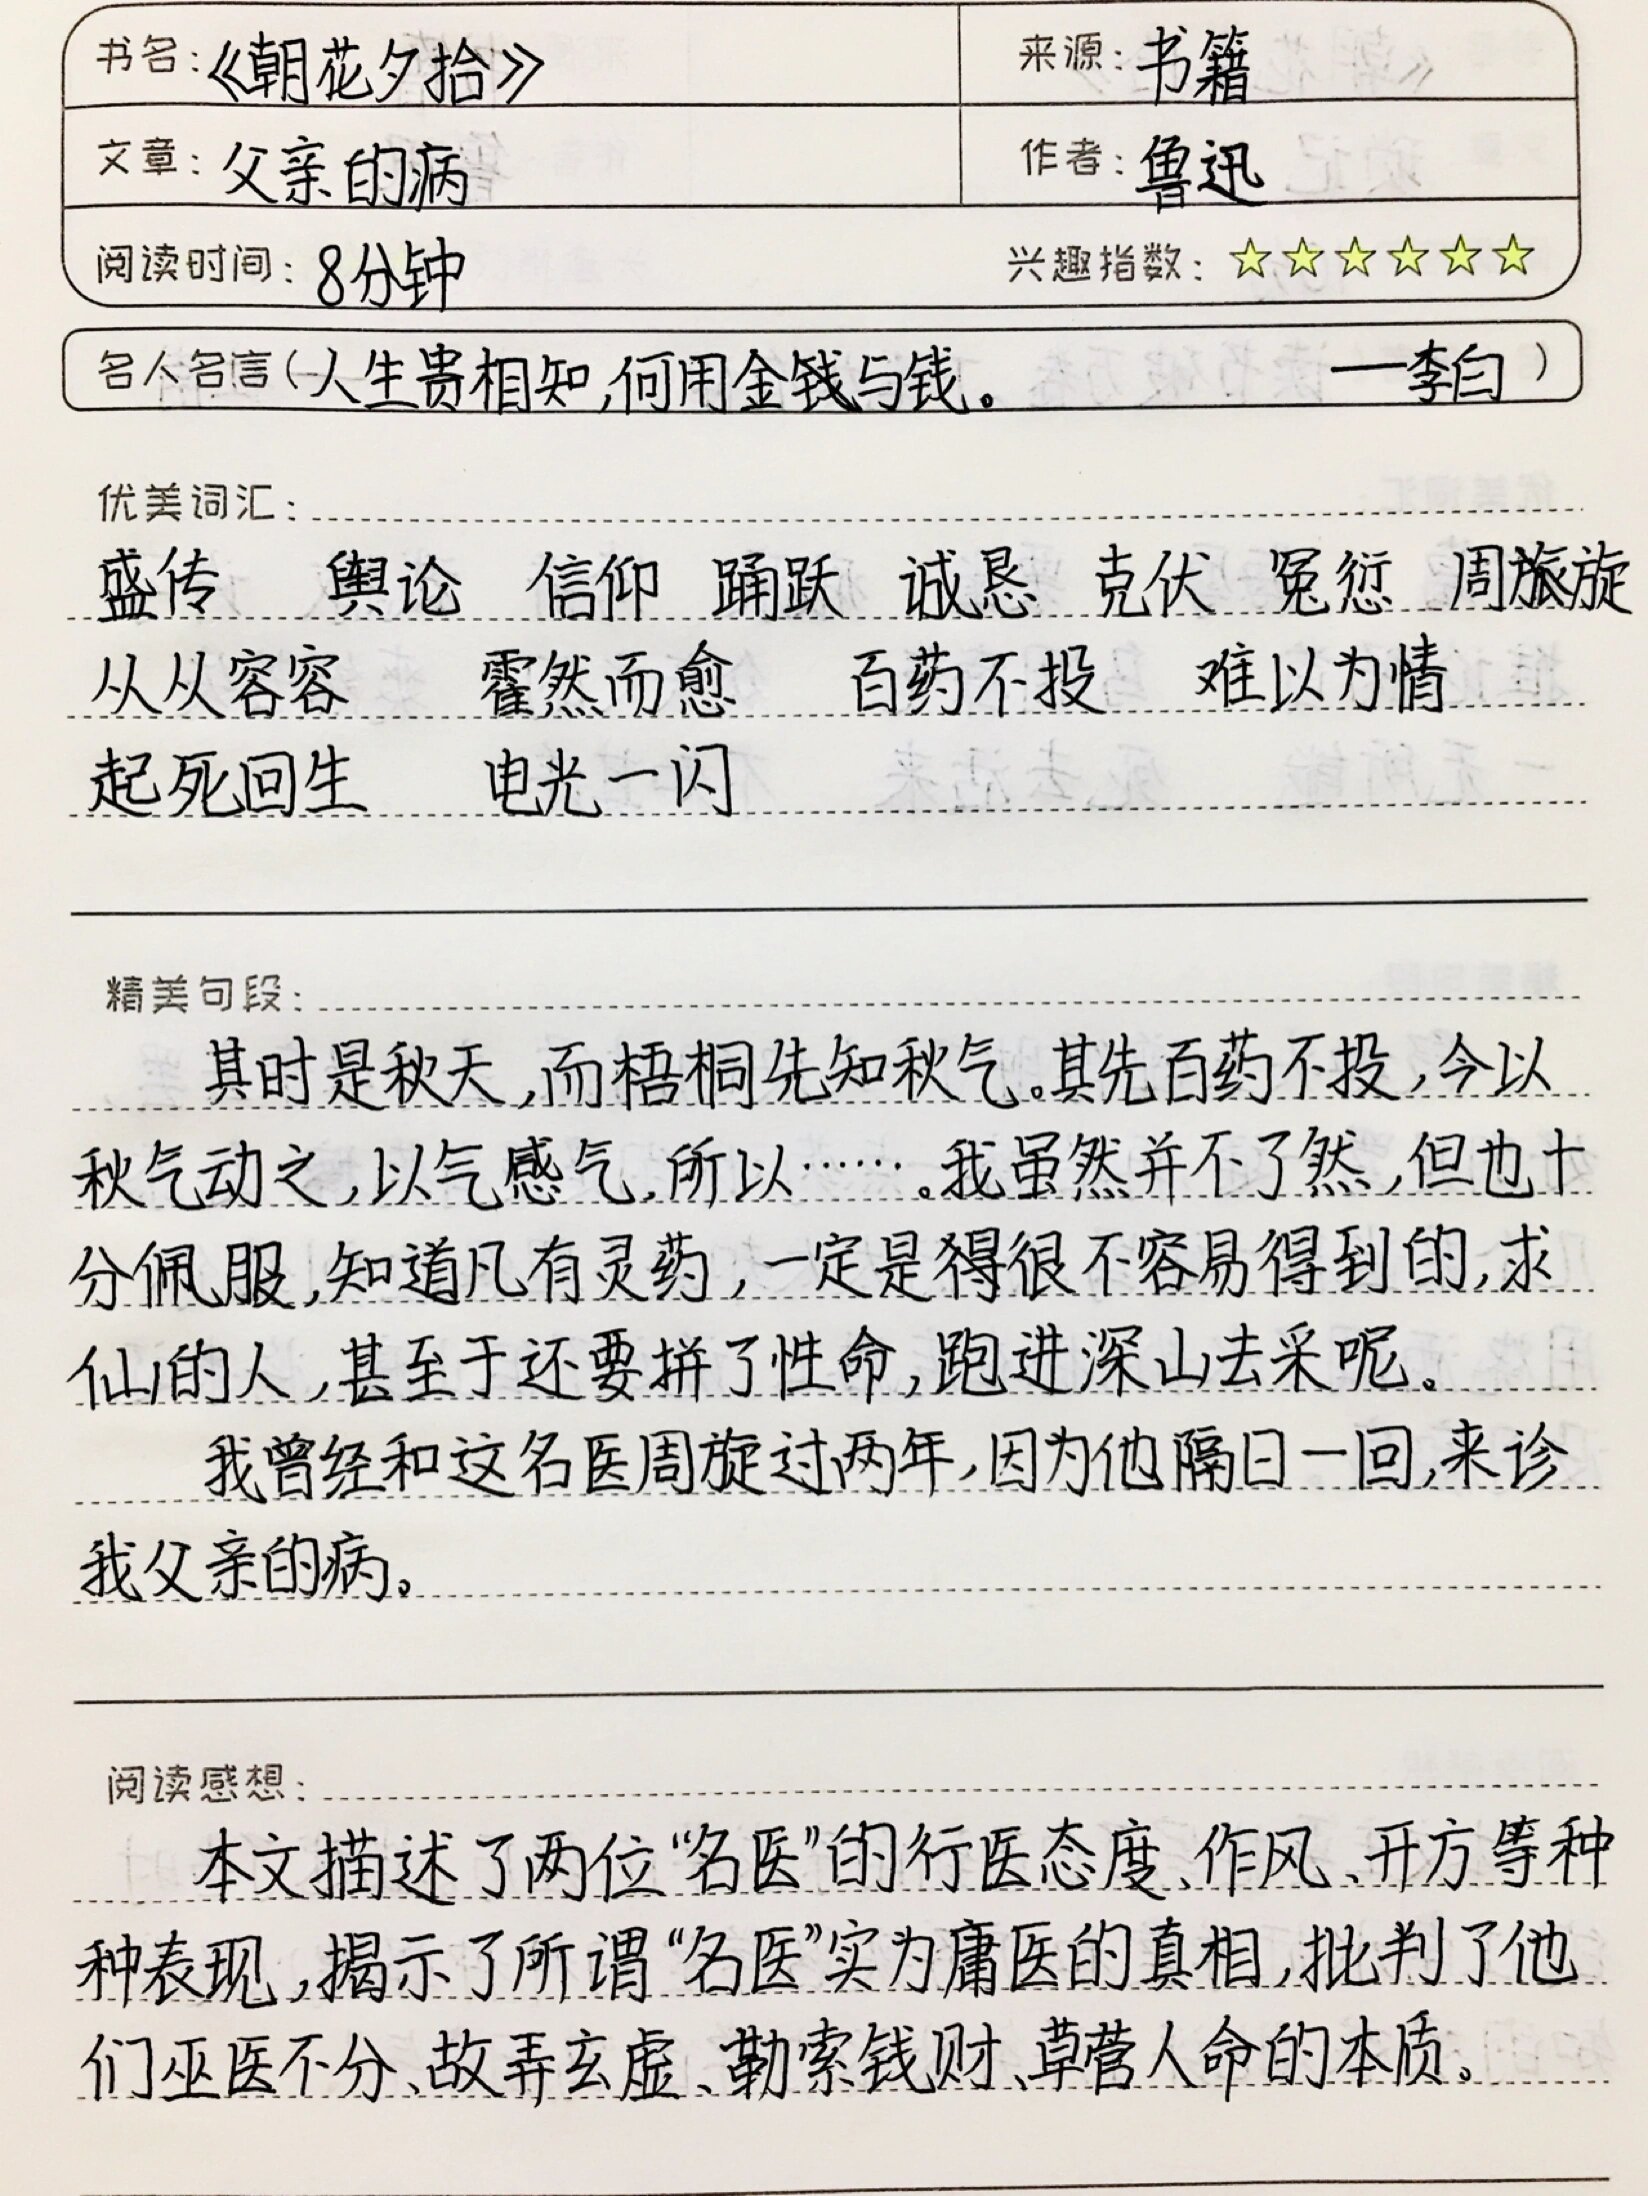 书名：《朝花夕拾》 来源：书籍
文章：父亲的病 作者：鲁迅
阅读时间：8分钟 兴趣指数：☆☆☆☆☆☆
名人名言（人生贵相知，何用金钱与钱。 ——李白）
优美词汇：
盛传 舆论 信仰 踊跃 诚恳 克伏 冤愆 周旋
从从容容 霍然而愈 百药不投 难以为情
起死回生 电光一闪
精美句段：
其时是秋天，而梧桐先知秋气。其先百药不投，今以
秋气动之，以气感气，所以……。我虽然并不了然，但也十
分佩服，知道凡有灵药，一定是很不容易得到的，求
仙的人，甚至于还要拼了性命，跑进深山去采呢。
我曾经和这名医周旋过两年，因为他隔日一回，来诊
我父亲的病。
阅读感想：
本文描述了两位“名医”的行医态度、作风、开方等种
种表现，揭示了所谓“名医”实为庸医的真相，批判了他
们巫医不分、故弄玄虚、勒索钱财、草菅人命的本质。